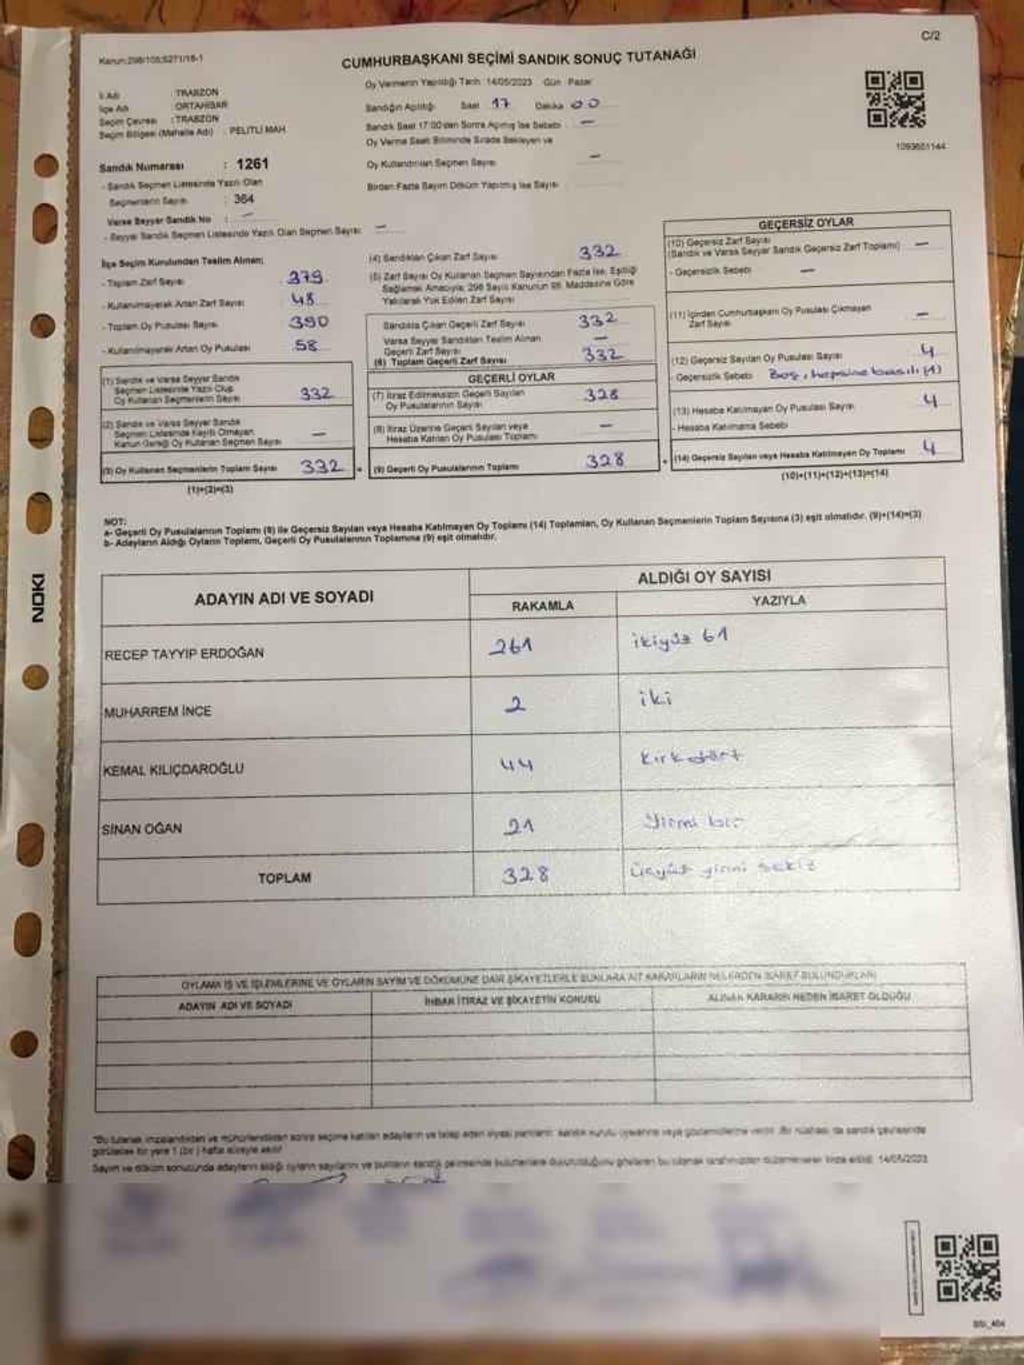 C/2
Kanun:298/105;6271/18-1
CUMHURBAŞKANI SEÇİMİ SANDIK SONUÇ TUTANAĞI
Oy Vermenin Yapıldığı Tarih : 14/05/2023 Gün : Pazar
İl Adı : TRABZON
İlçe Adı : ORTAHİSAR
Seçim Çevresi : TRABZON
Seçim Bölgesi (Mahalle Adı) : PELİTLİ MAH.
Sandığın Açıldığı Saat 17 Dakika 00
Sandık Saat 17:00'den Sonra Açılmış İse Sebebi —
Oy Verme Saati Bitiminde Sırada Bekleyen ve
Oy Kullandırılan Seçmen Sayısı —
Birden Fazla Sayım Döküm Yapılmış İse Sayısı
1093651144
Sandık Numarası : 1261
- Sandık Seçmen Listesinde Yazılı Olan
Seçmenlerin Sayısı : 364
Varsa Seyyar Sandık No : —
- Seyyar Sandık Seçmen Listesinde Yazılı Olan Seçmen Sayısı: —
İlçe Seçim Kurulundan Teslim Alınan;
- Toplam Zarf Sayısı 379
- Kullanılmayarak Artan Zarf Sayısı 48
- Toplam Oy Pusulası Sayısı 390
- Kullanılmayarak Artan Oy Pusulası 58
(1) Sandık ve Varsa Seyyar Sandık
Seçmen Listesinde Yazılı Olup
Oy Kullanan Seçmenlerin Sayısı 332
(2) Sandık ve Varsa Seyyar Sandık
Seçmen Listesinde Kayıtlı Olmayan
Kanun Gereği Oy Kullanan Seçmen Sayısı —
(3) Oy Kullanan Seçmenlerin Toplam Sayısı 332
(1)+(2)=(3)
(4) Sandıktan Çıkan Zarf Sayısı 332
(5) Zarf Sayısı Oy Kullanan Seçmen Sayısından Fazla İse, Eşitliği
Sağlamak Amacıyla; 298 Sayılı Kanunun 98. Maddesine Göre
Yakılarak Yok Edilen Zarf Sayısı
Sandıkta Çıkan Geçerli Zarf Sayısı 332
Varsa Seyyar Sandıktan Teslim Alınan
Geçerli Zarf Sayısı —
(6) Toplam Geçerli Zarf Sayısı 332
GEÇERLİ OYLAR
(7) İtiraz Edilmeksizin Geçerli Sayılan
Oy Pusulalarının Sayısı 328
(8) İtiraz Üzerine Geçerli Sayılan veya
Hesaba Katılan Oy Pusulası Toplamı —
(9) Geçerli Oy Pusulalarının Toplamı 328
GEÇERSİZ OYLAR
(10) Geçersiz Zarf Sayısı
(Sandık ve Varsa Seyyar Sandık Geçersiz Zarf Toplamı) —
- Geçersizlik Sebebi —
(11) İçinden Cumhurbaşkanı Oy Pusulası Çıkmayan
Zarf Sayısı —
(12) Geçersiz Sayılan Oy Pusulası Sayısı 4
- Geçersizlik Sebebi Boş, hepsine basılı (4)
(13) Hesaba Katılmayan Oy Pusulası Sayısı 4
- Hesaba Katılmama Sebebi
(14) Geçersiz Sayılan veya Hesaba Katılmayan Oy Toplamı 4
(10)+(11)+(12)+(13)=(14)
NOT:
a- Geçerli Oy Pusulalarının Toplamı (9) ile Geçersiz Sayılan veya Hesaba Katılmayan Oy Toplamı (14) Toplamları, Oy Kullanan Seçmenlerin Toplam Sayısına (3) eşit olmalıdır. (9)+(14)=(3)
b- Adayların Aldığı Oyların Toplamı, Geçerli Oy Pusulalarının Toplamına (9) eşit olmalıdır.
NOKI
ADAYIN ADI VE SOYADI
ALDIĞI OY SAYISI
RAKAMLA YAZIYLA
RECEP TAYYİP ERDOĞAN 261 ikiyüz 61
MUHARREM İNCE 2 iki
KEMAL KILIÇDAROĞLU 44 kırkdört
SİNAN OĞAN 21 Yirmi bir
TOPLAM 328 üçyüz yirmi sekiz
OYLAMA İŞ VE İŞLEMLERİNE VE OYLARIN SAYIM VE DÖKÜMÜNE DAİR ŞİKAYETLERLE BUNLARA AİT KARARLARIN NELERDEN İBARET BULUNDUKLARI
ADAYIN ADI VE SOYADI İHBAR İTİRAZ VE ŞİKAYETİN KONUSU ALINAN KARARIN NEDEN İBARET OLDUĞU
"Bu tutanak imzalandıktan ve mühürlendikten sonra seçime katılan adayların ve talep eden siyasi partilerin sandık kurulu üyelerine veya gözlemcilerine verilir. Bir nüshası da sandık çevresinde
görülecek bir yere 1 (bir) hafta süreyle asılır"
Sayım ve döküm sonucunda adayların aldığı oyların sayılarını ve bunların sandık çevresinde